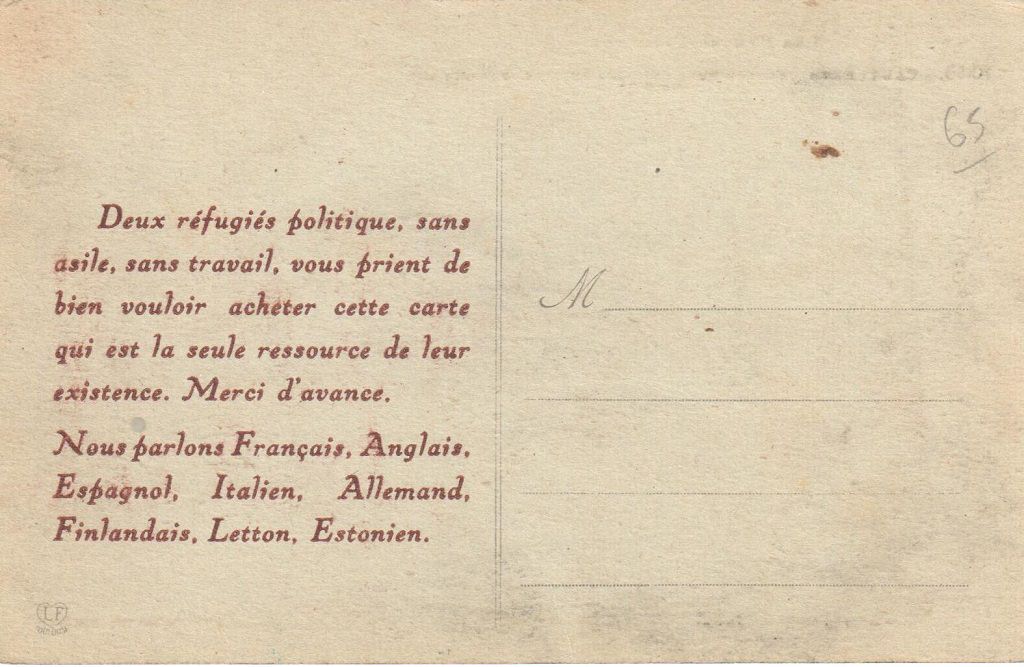 Deux réfugiés politique, sans
asile, sans travail, vous prient de
bien vouloir acheter cette carte
qui est la seule ressource de leur
existence. Merci d'avance.
Nous parlons Français, Anglais,
Espagnol, Italien, Allemand,
Finlandais, Letton, Estonien.
LF
M
65